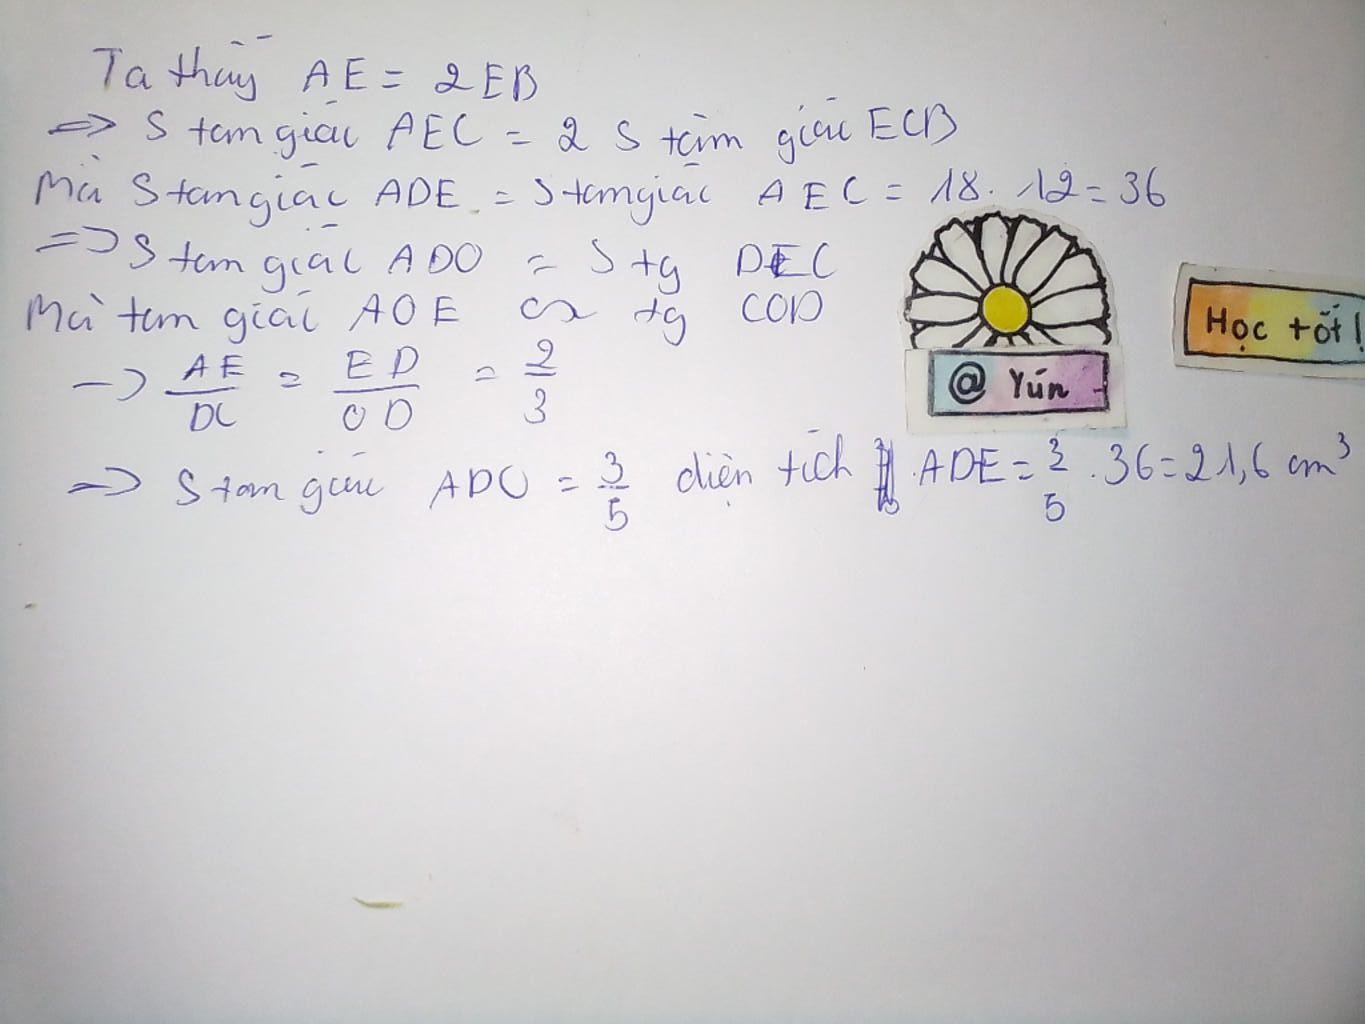 Ta thấy AE = 2EB
=> S tam giác AEC = 2 S tam giác ECB
Mà S tam giác ADE = S tam giác AEC = 18 . 12 = 36
=> S tam giác ADO = S tg DEC
Mà tam giác AOE ∽ tg COD
-> AE/DC = ED/OD = 2/3
=> S tam giác ADO = 3/5 diện tích ADE = 3/5 . 36 = 21,6 cm³
@ Yún
Học tốt!